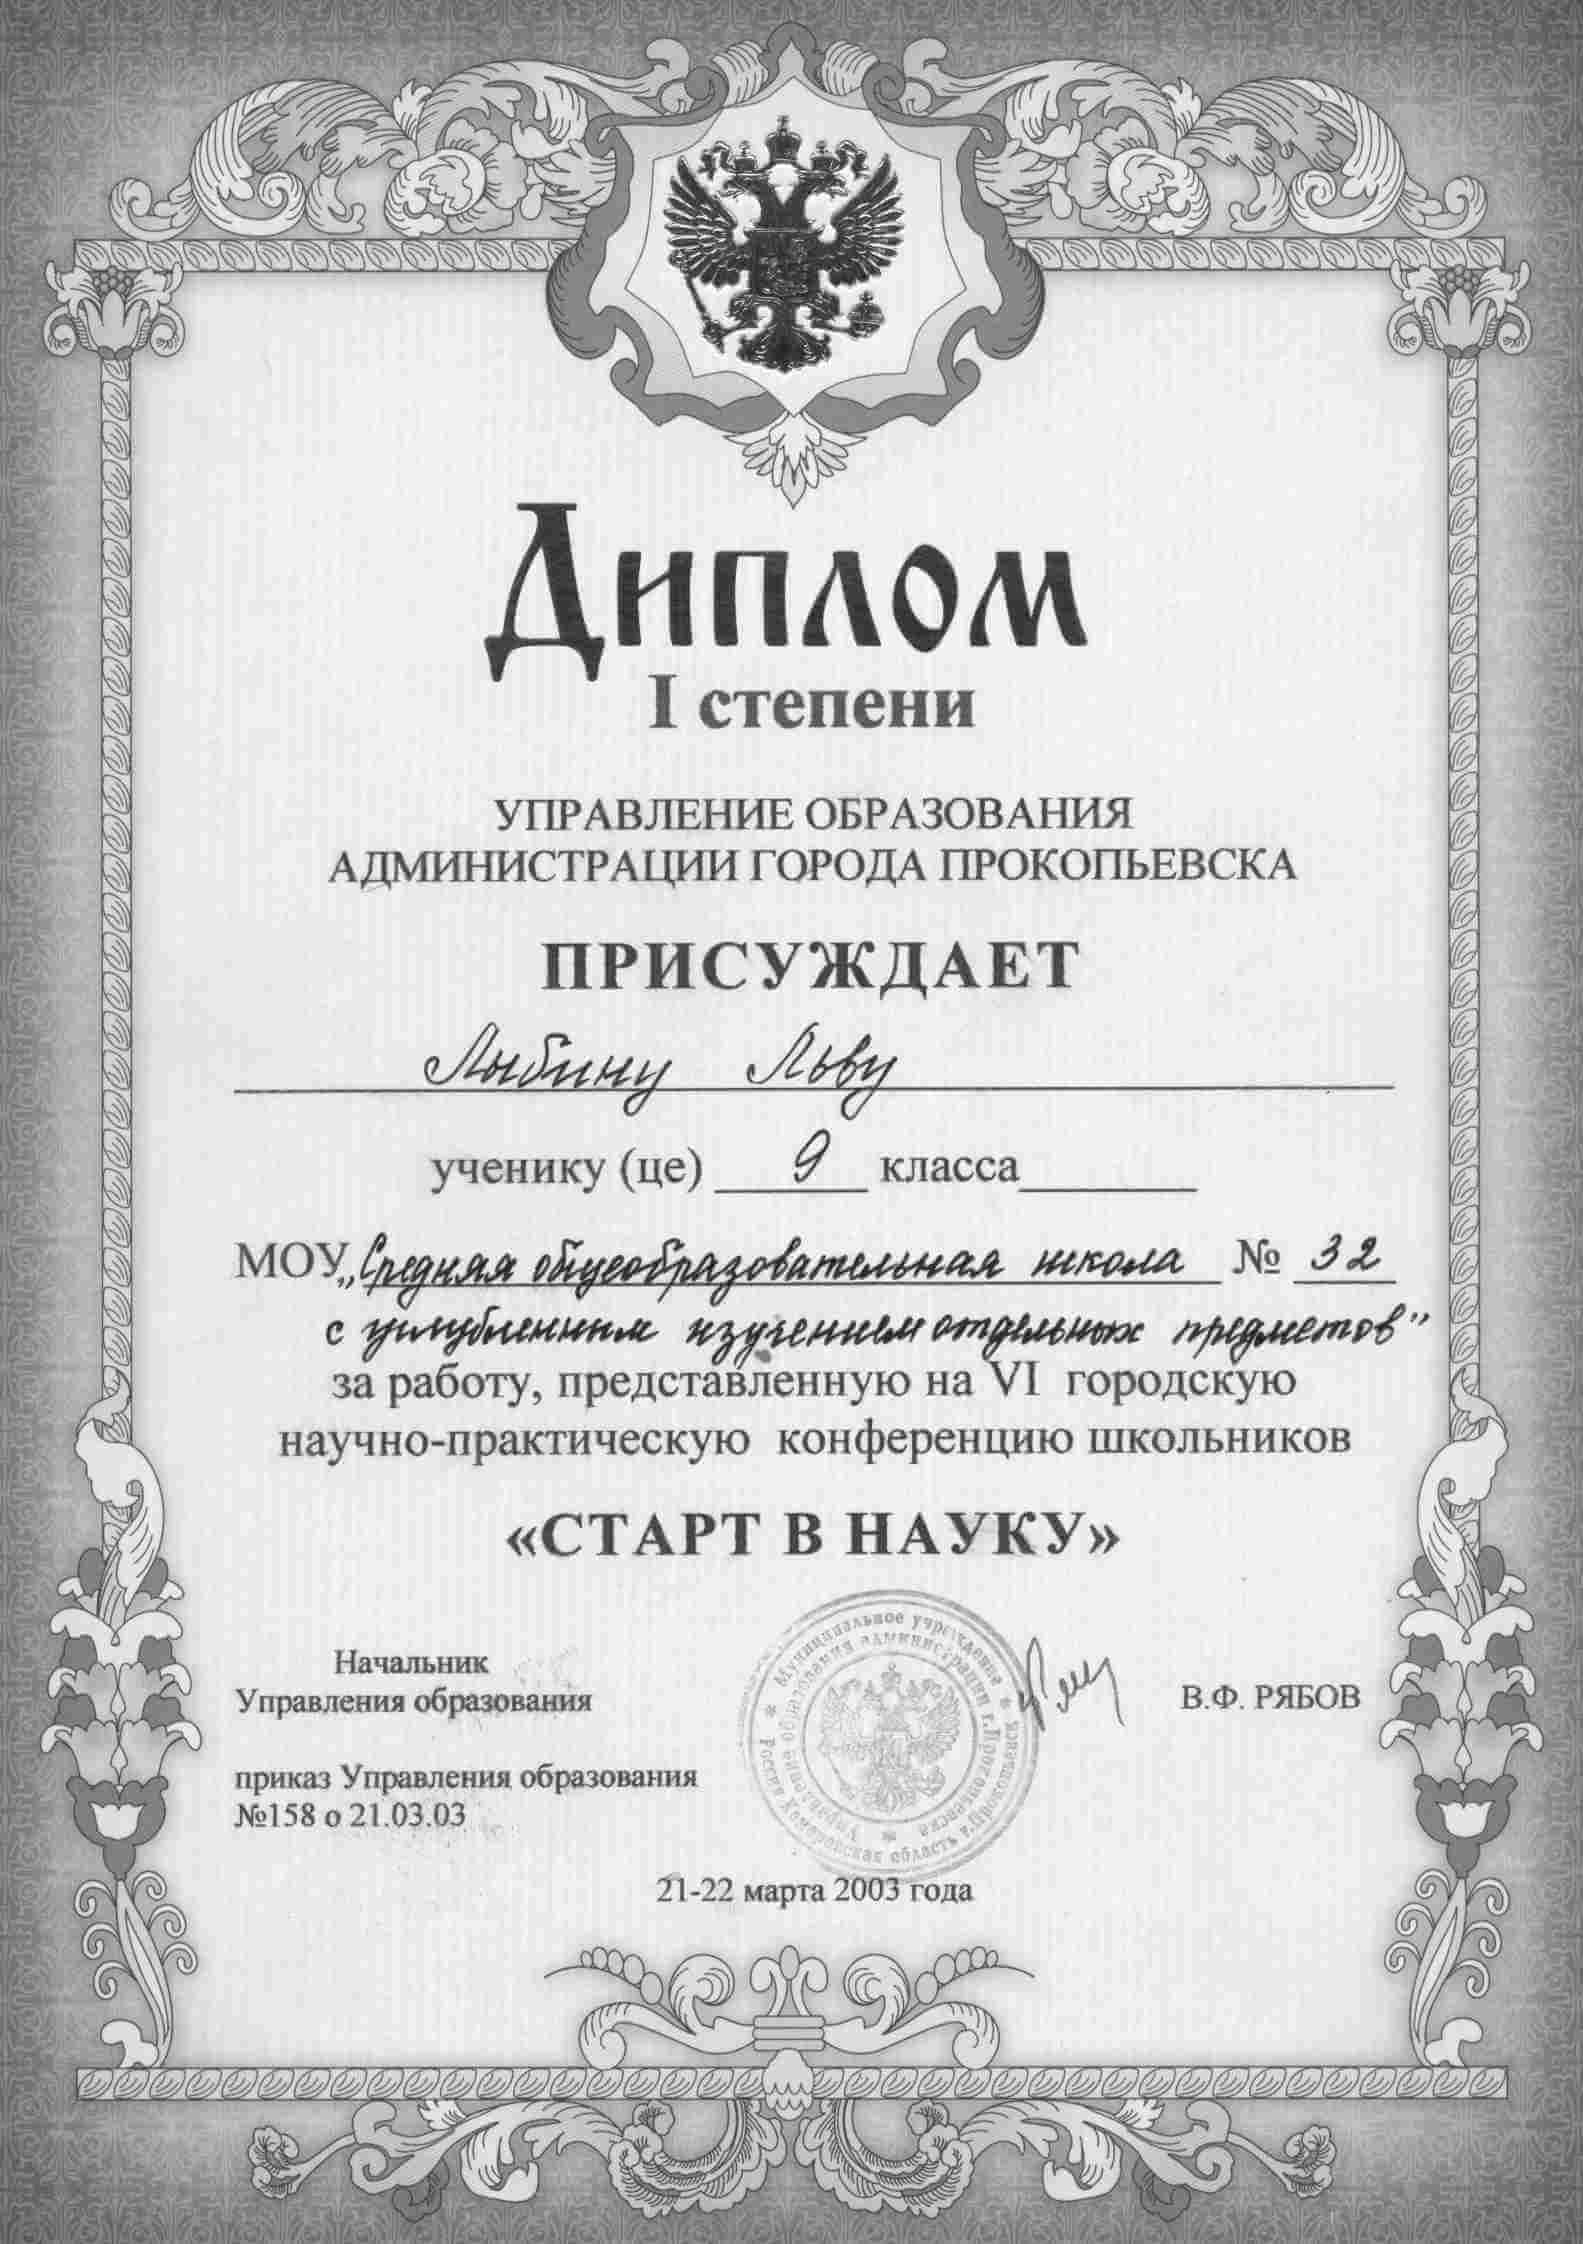 Диплом
I степени
УПРАВЛЕНИЕ ОБРАЗОВАНИЯ
АДМИНИСТРАЦИИ ГОРОДА ПРОКОПЬЕВСКА
ПРИСУЖДАЕТ
Лыбину Льву
ученику (це) 9 класса
МОУ „Средняя общеобразовательная школа № 32
с углубленным изучением отдельных предметов”
за работу, представленную на VI городскую
научно-практическую конференцию школьников
«СТАРТ В НАУКУ»
Начальник
Управления образования
В.Ф. РЯБОВ
приказ Управления образования
№158 о 21.03.03
Муниципальное учреждение * Россия Кемеровская область г.Прокопьевск *
Управление образования администрации г.Прокопьевска *
21-22 марта 2003 года